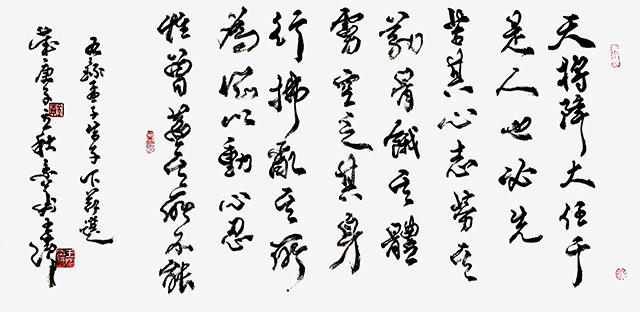 天將降大任于
是人也必先
苦其心志勞其
筋骨餓其體
膚空乏其身
行拂亂其所
為所以動心忍
性曾益其所不能
錄孟子告子下節選
歲庚子秋